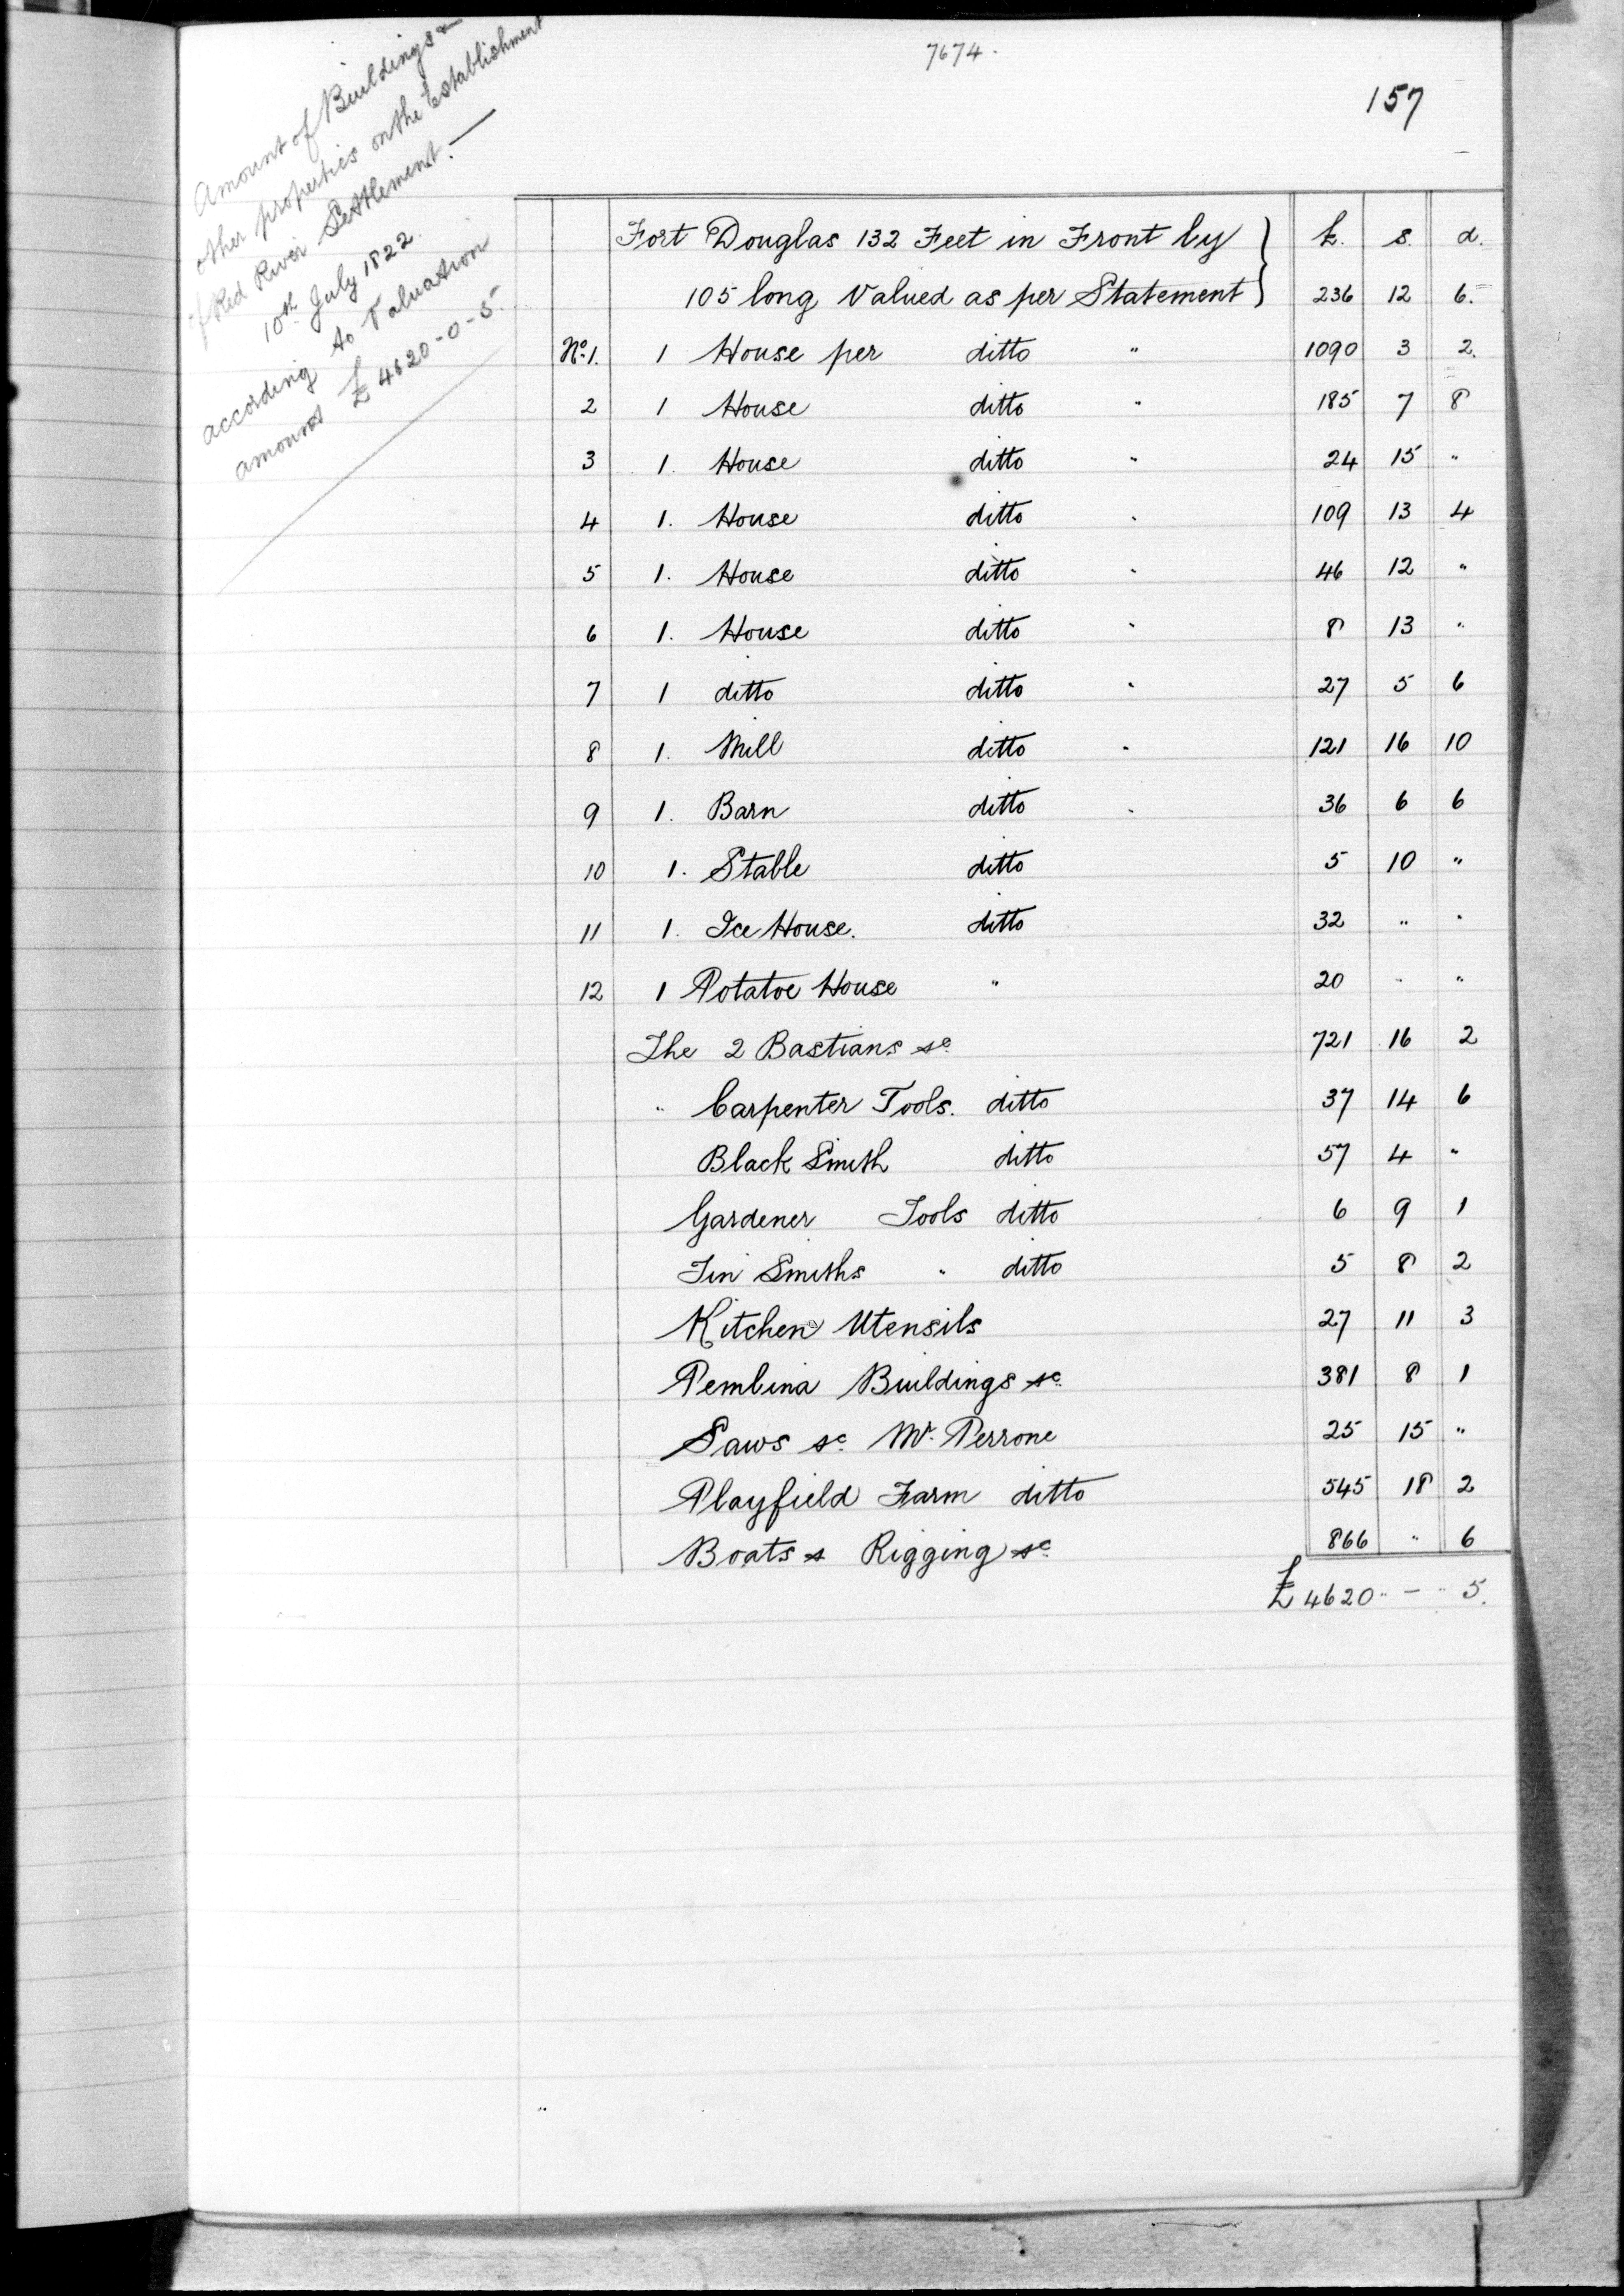 7674.
157
Amount of Buildings &
other properties on the Establishment
of Red River Settlement. —
10th July 1822.
according to Valuation
amounts £ 4620-0-5.
Fort Douglas 132 Feet in Front by } £. s. d.
105 long Valued as per Statement } 236 12 6.
No. 1. 1 House per ditto " 1090 3 2.
2 1 House ditto " 185 7 8
3 1. House ditto " 24 15 "
4 1. House ditto " 109 13 4
5 1. House ditto " 46 12 "
6 1. House ditto " 8 13 "
7 1 ditto ditto " 27 5 6
8 1. Mill ditto " 121 16 10
9 1. Barn ditto " 36 6 6
10 1. Stable ditto 5 10 "
11 1. Ice House. ditto 32 " "
12 1 Potatoe House " 20 " "
The 2 Bastians &c 721 16 2
" Carpenter Tools. ditto 37 14 6
Black Smith ditto 57 4 "
Gardener Tools ditto 6 9 1
Tin Smiths " ditto 5 8 2
Kitchen Utensils 27 11 3
Pembina Buildings &c 381 8 1
Saws &c Mr. Perrone 25 15 "
Playfield Farm ditto 545 18 2
Boats & Rigging &c 866 " 6
£ 4620 " - " 5.